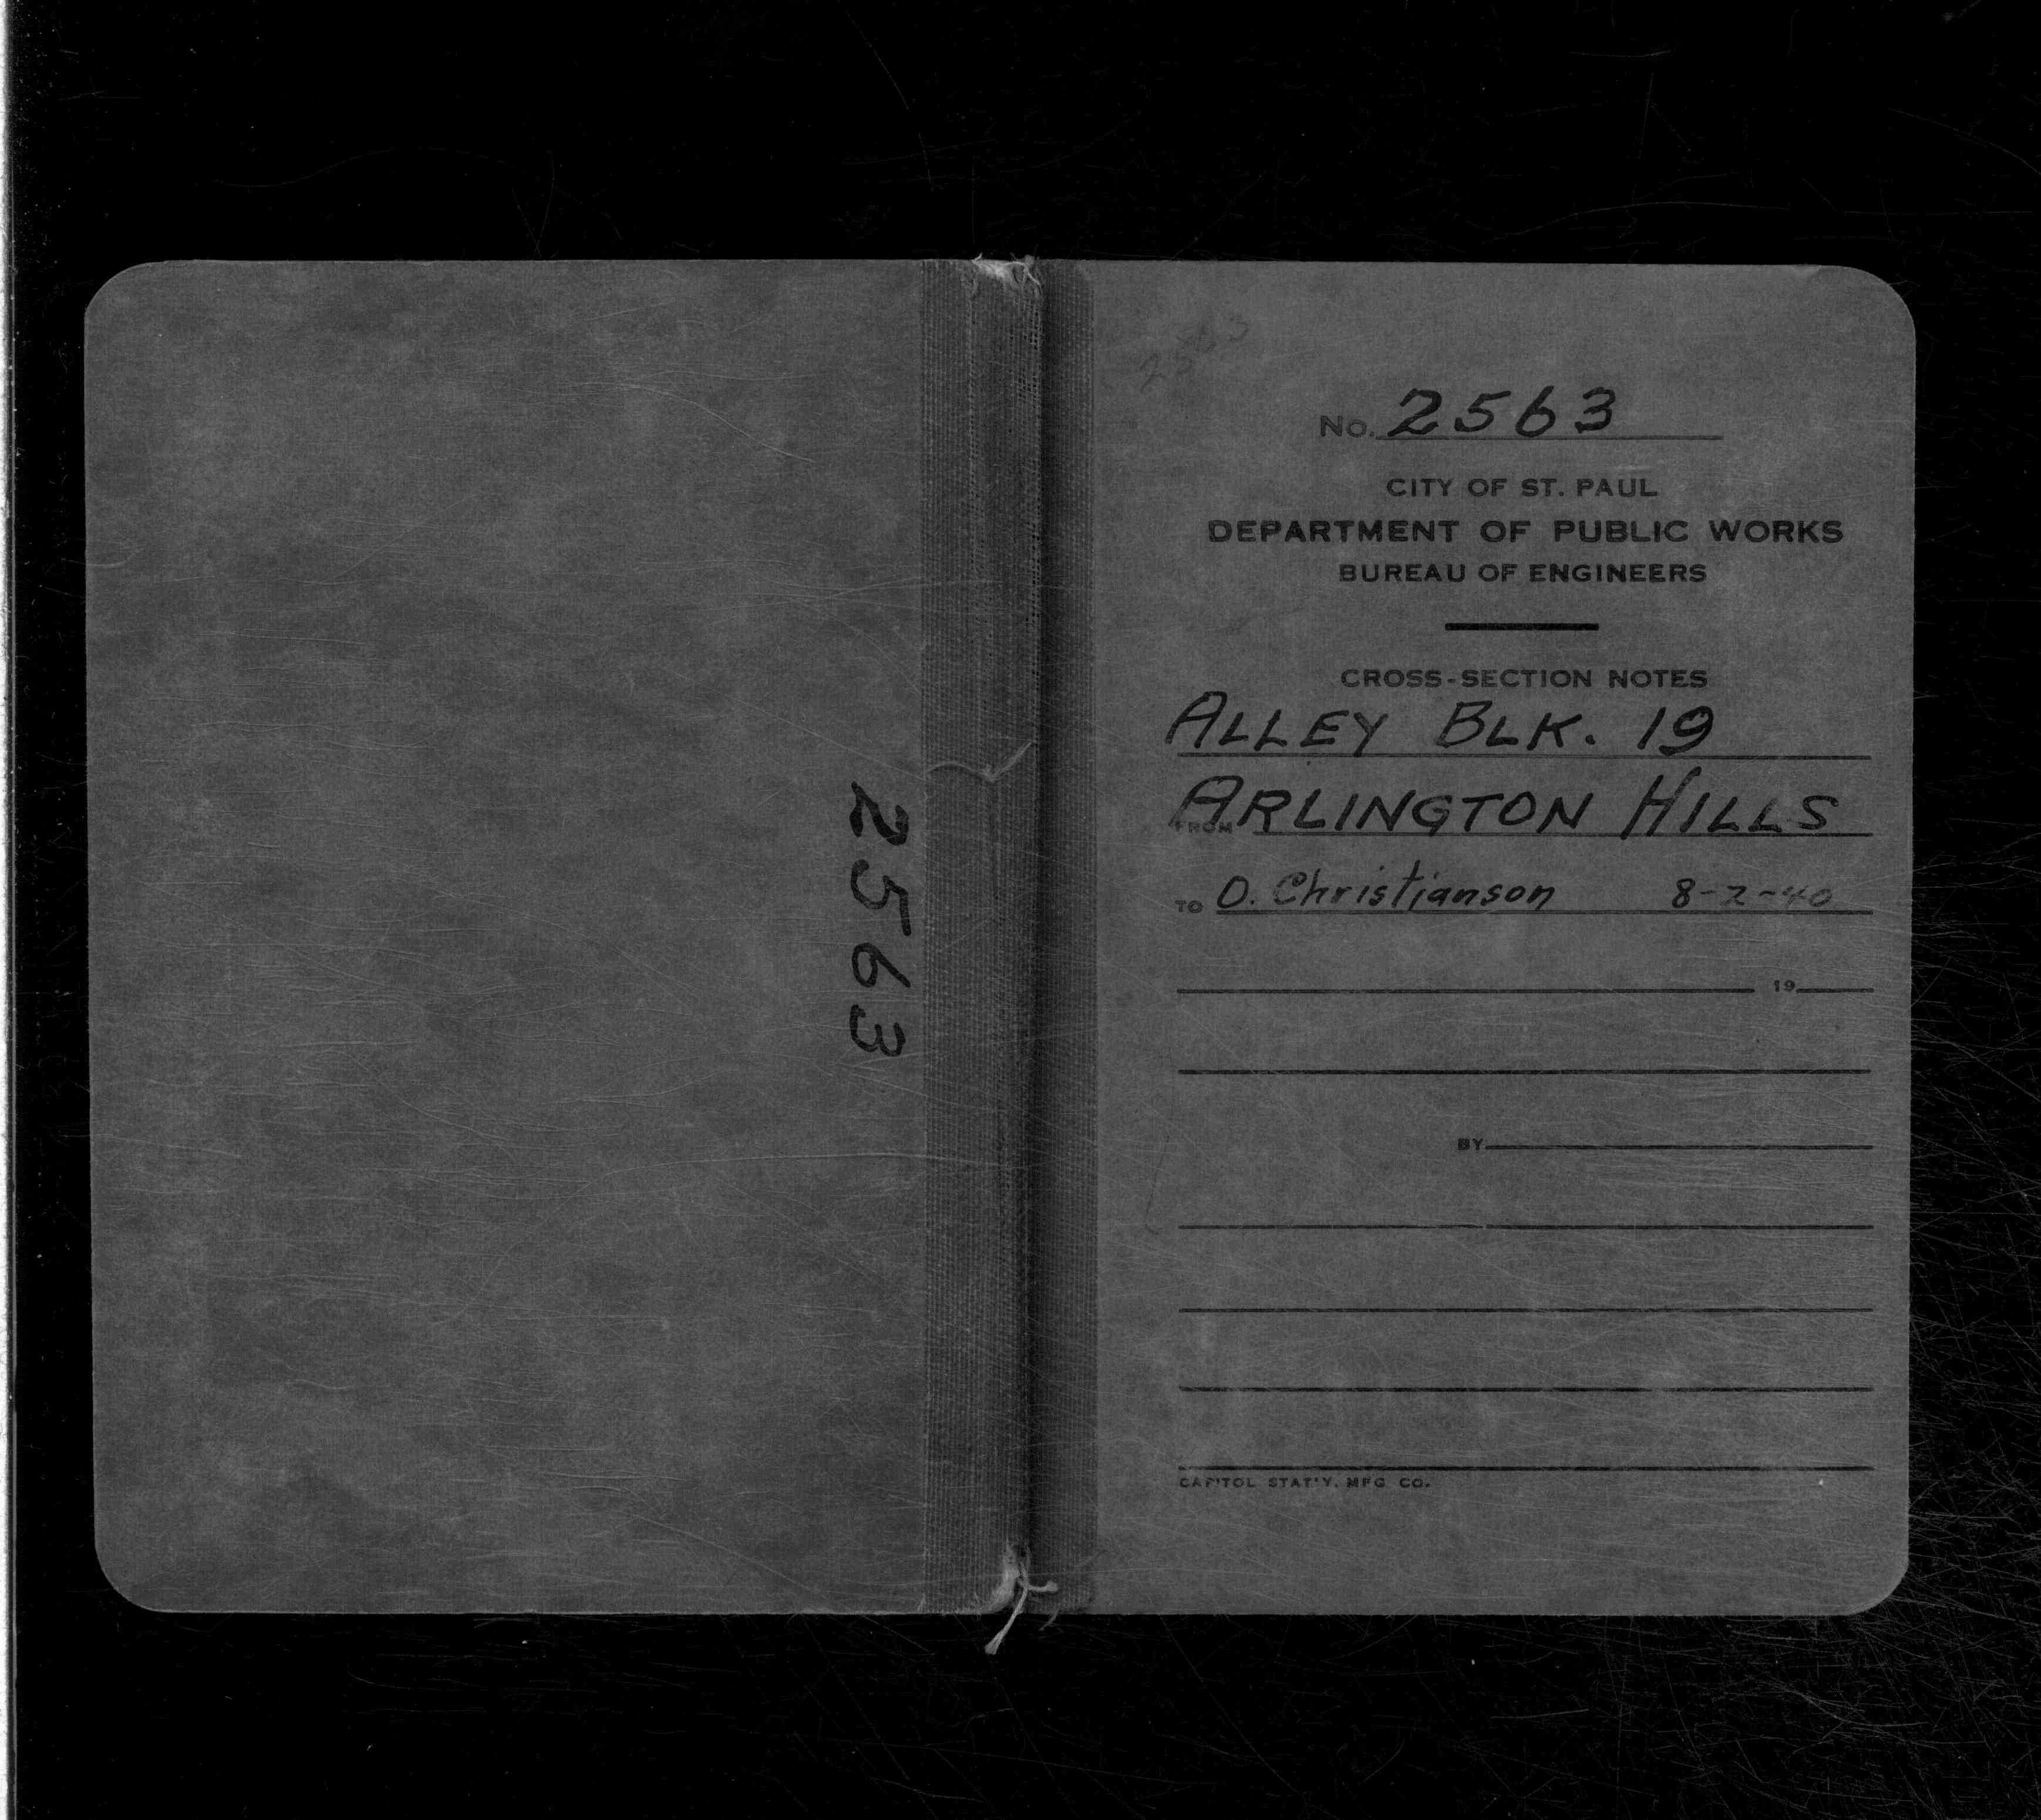 2563
2563
No. 2563
CITY OF ST. PAUL
DEPARTMENT OF PUBLIC WORKS
BUREAU OF ENGINEERS
CROSS-SECTION NOTES
ALLEY BLK. 19
FROM ARLINGTON HILLS
TO O. Christianson 8-2-40
19
BY
CAPITOL STAT'Y. MFG CO.